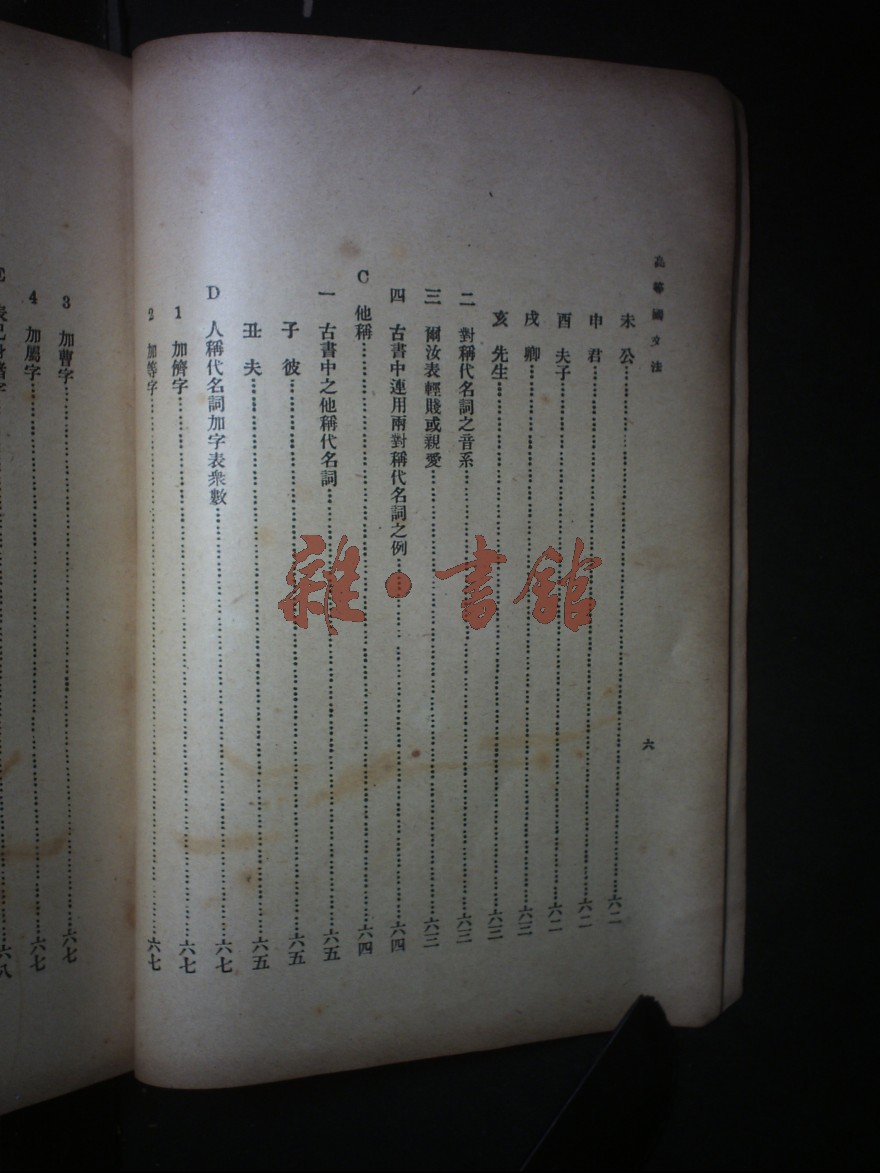 高等國文法
六
未 公……六二
申 君……六二
酉 夫子……六二
戌 卿……六三
亥 先生……六三
二 對稱代名詞之音系……六三
三 爾汝表輕賤或親愛……六三
四 古書中連用兩對稱代名詞之例……六四
C 他稱……六四
一 古書中之他稱代名詞……六五
子 彼……六五
丑 夫……六五
D 人稱代名詞加字表衆數……六七
1 加儕字……六七
2 加等字……六七
3 加曹字……六七
4 加屬字……六七
六八
雜·書館